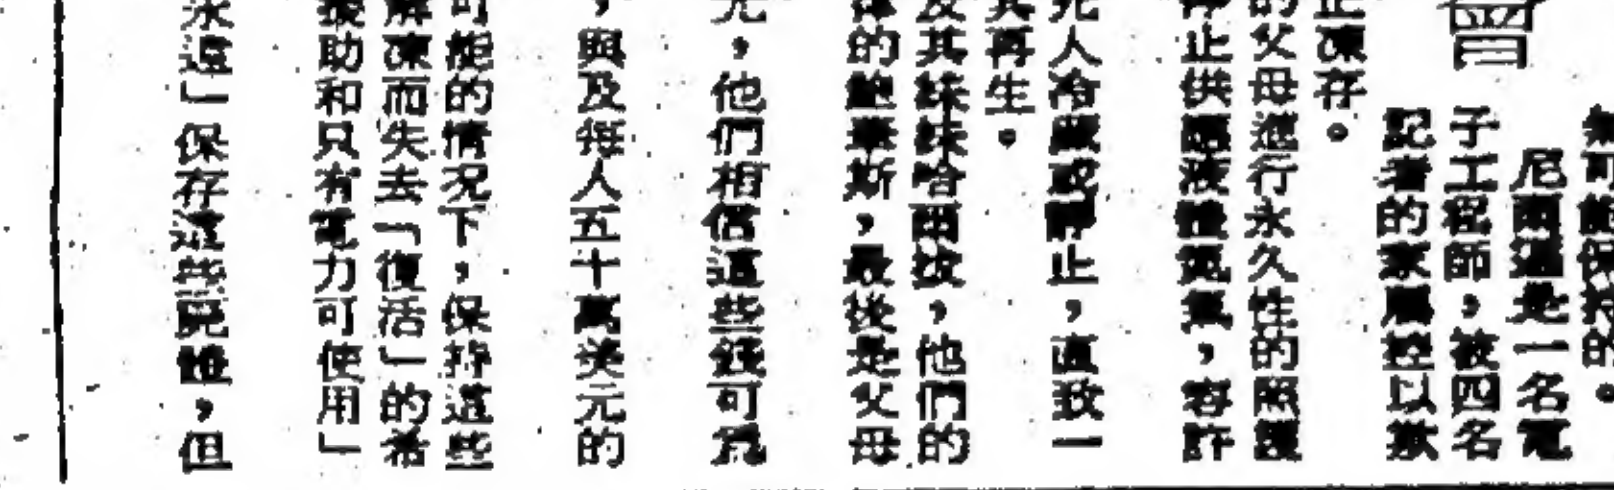 無可能保持的。
尼爾遜是一名電
子工程師，被四名
記者的家屬控以欺
曾
止凍存。
的父母進行永久性的照護
停止供應液體氮氣，容許
死人冷藏或靜止，直致一
其再生。
及其妹妹哈爾坡，他們的
律的鮑華斯，最後是父母
元，他們相信這些錢可為
，與及每人五十萬美元的
可能的情況下，保持這些
解凍而失去「復活」的希
援助和只有電力可使用」
永遠」保存這些屍體，但